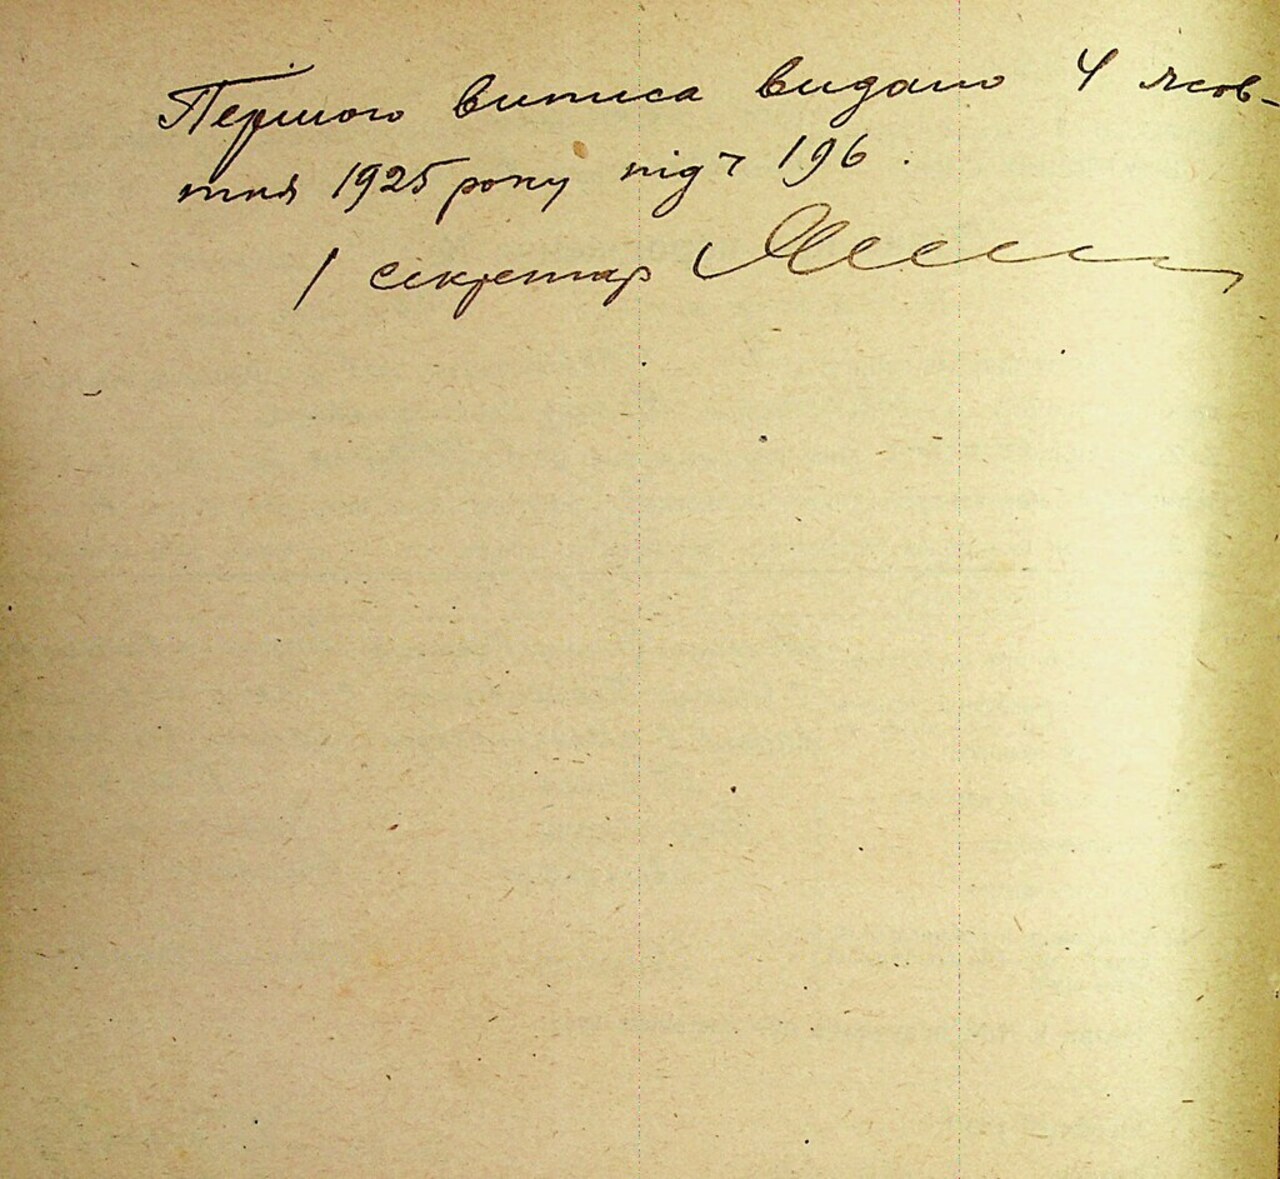 Першого виписа видано 4 жов-
тня 1925 року під ч 196.
/ секретар